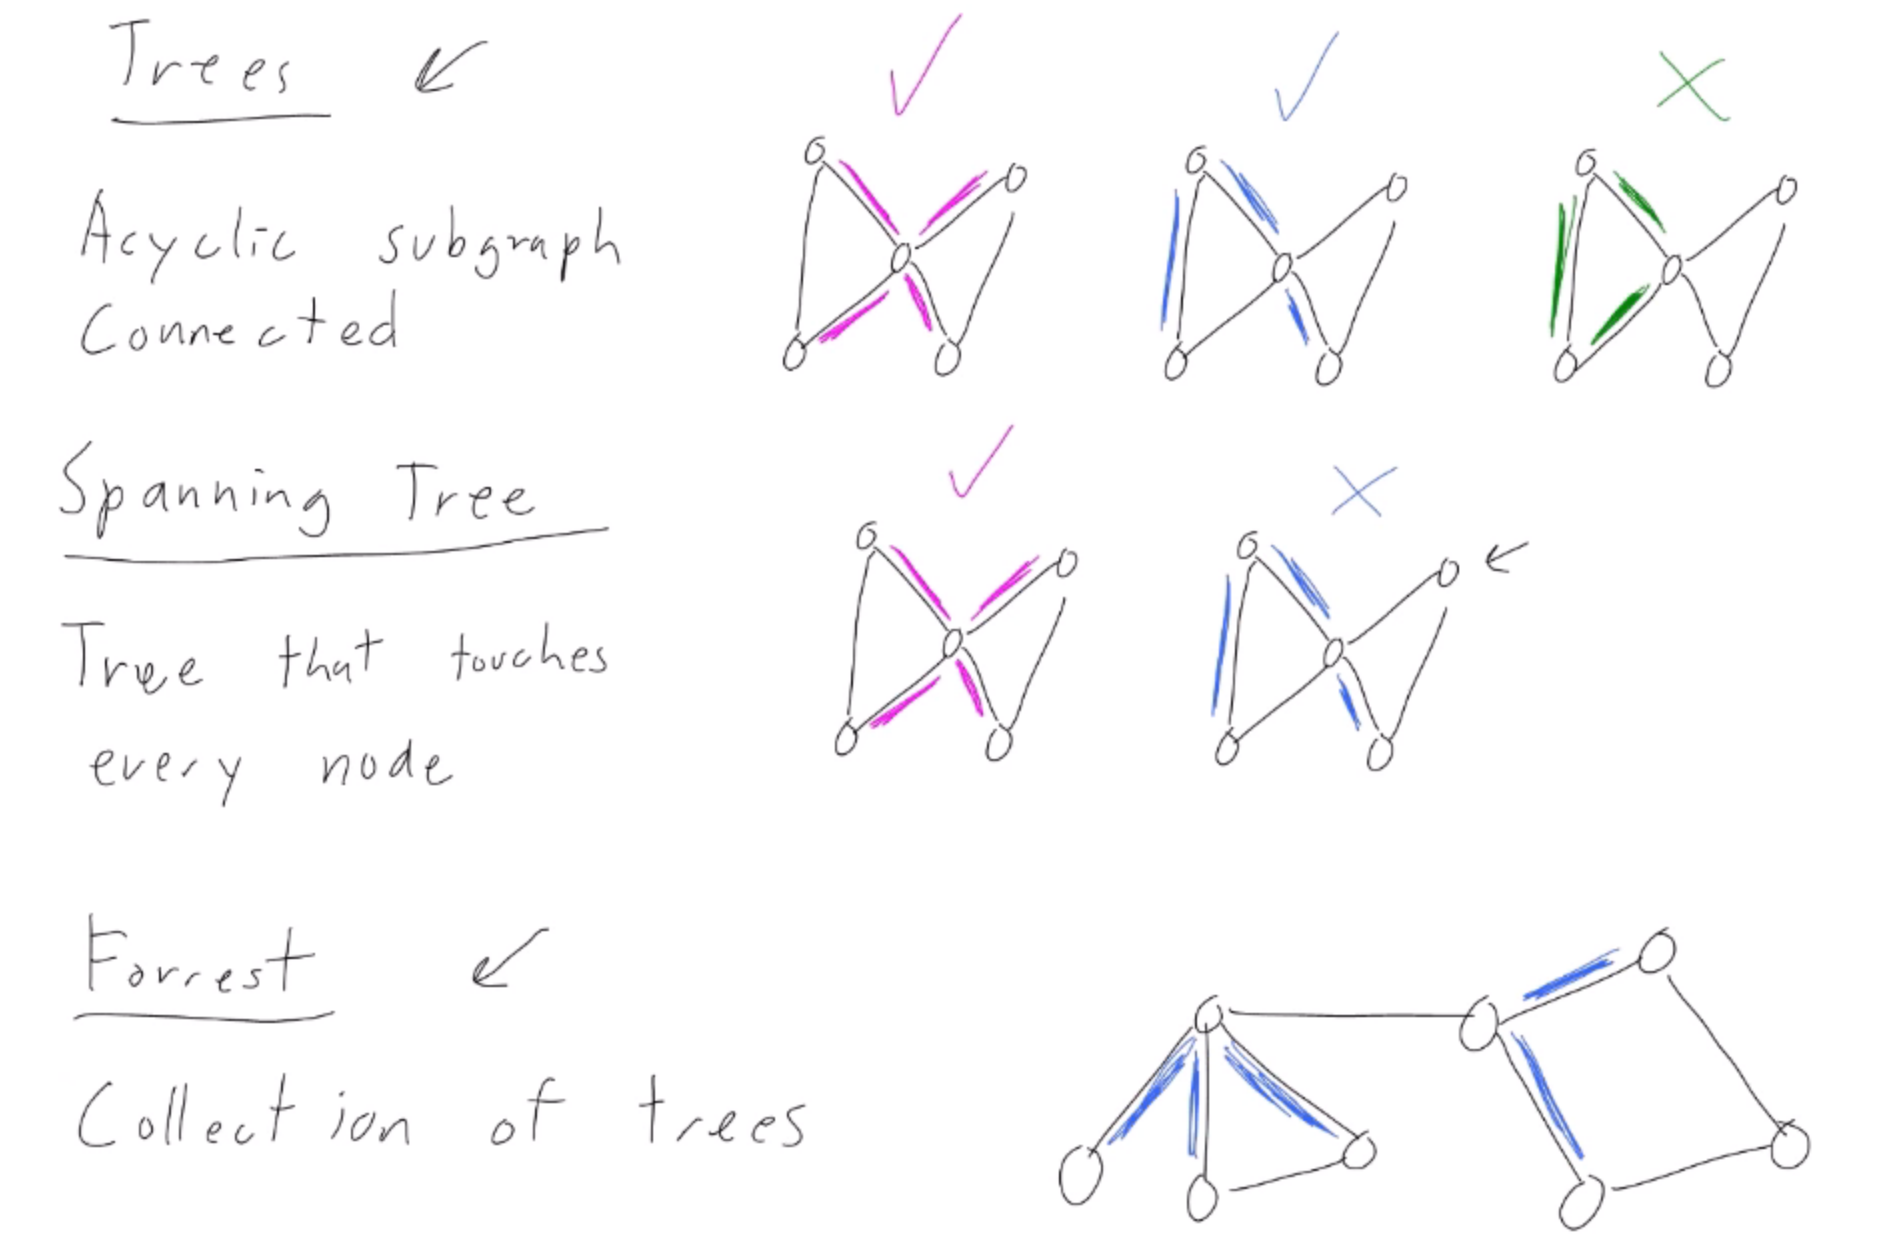 Trees
Acyclic subgraph
Connected
Spanning Tree
Tree that touches
every node
Forrest
Collection of trees